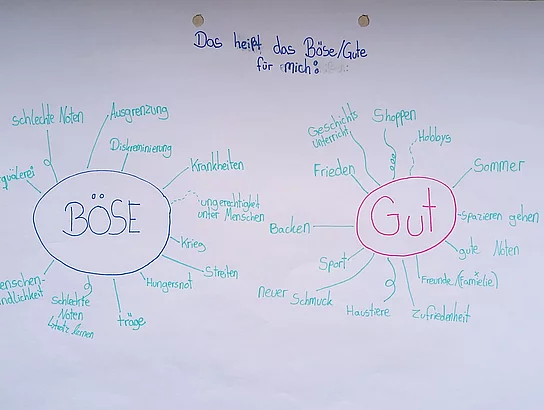 Das heißt das Böse/Gute
für mich:
schlechte Noten
Ausgrenzung
Diskreminierung
Krankheiten
ungerechtigkeit
unter Menschen
Krieg
Streiten
Hungersnot
träge
Schlechte
Noten
trotz lernen
BÖSE
Geschichts
unterricht
Shoppen
Hobbys
Sommer
Spazieren gehen
gute Noten
Freunde/Familie
Zufriedenheit
Haustiere
Neuer Schmuck
Sport
Backen
Frieden
Gut